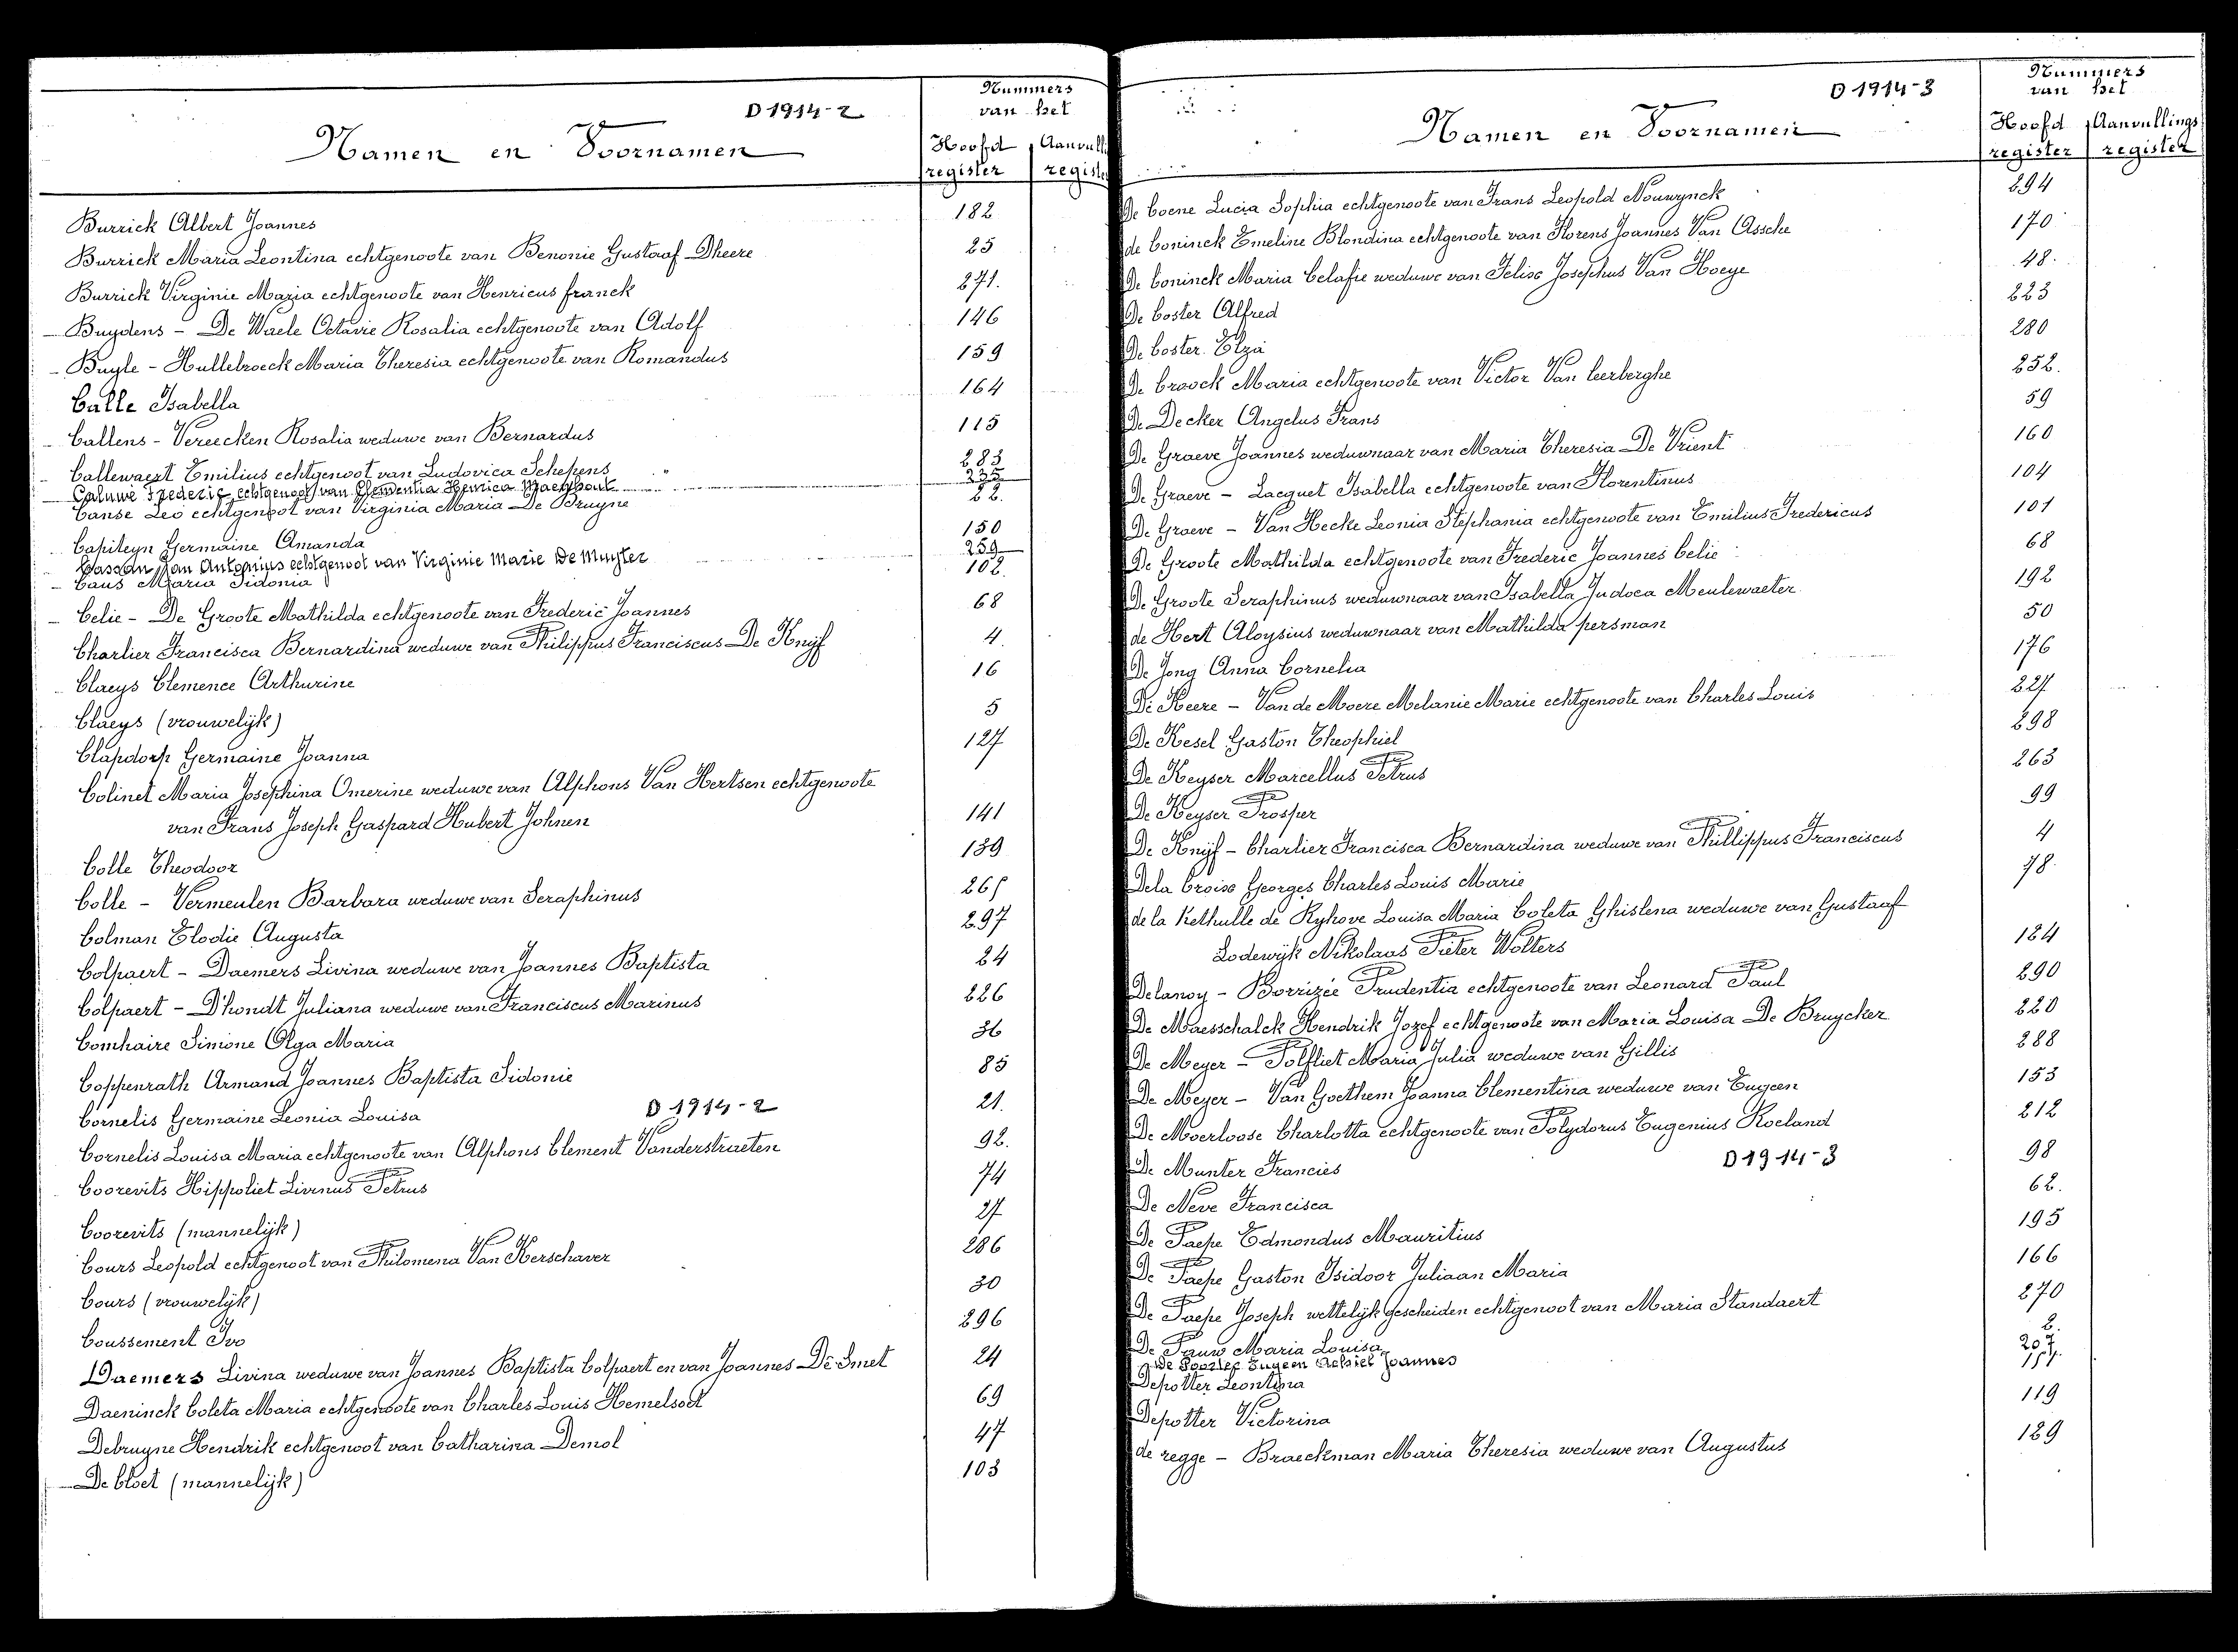 D 1914-2
Namen en Voornamen
Nummers
van het
Hoofd register Aanvull registe
Burrick Albert Joannes 182
Burrick Maria Leontina echtgenoote van Benonie Gustaaf Dheere 25
Burrick Virginie Maria echtgenoote van Henricus franck 271.
Buydens - De Waele Octavie Rosalia echtgenoote van Adolf 146
Buyle - Hullebroeck Maria Theresia echtgenoote van Romandus 159
Calle Isabella 164
Callens - Vereecken Rosalia weduwe van Bernardus 115
Callewaert Emilius echtgenoot van Ludovica Schepens 283
Caluwe Frederic echtgenoot van Clementia Henrica Maenhout 235
Canse Leo echtgenoot van Virginia Maria De Bruyne 22.
Capiteyn Germaine Amanda 150
Cassan Jan Antonius echtgenoot van Virginie Marie De Muyter 259
Caus Maria Sidonia 102.
Celie - De Groote Mathilda echtgenoote van Frederic Joannes 68
Charlier Francisca Bernardina weduwe van Philippus Franciscus De Knijf 4
Claeys Clemence Arthurine 16
Claeys (vrouwelijk) 5
Clapdorp Germaine Joanna 127
Colinet Maria Josephina Omerine weduwe van Alphons Van Hertsen echtgenoote
van Frans Joseph Gaspard Hubert Johnen 141
Colle Theodoor 139
Colle - Vermeulen Barbara weduwe van Seraphinus 265
Colman Elodie Augusta 297
Colpaert - Daemers Livina weduwe van Joannes Baptista 24
Colpaert - D'hondt Juliana weduwe van Franciscus Marinus 226
Comhaire Simone Olga Maria 36
Coppenrath Armand Joannes Baptista Sidonie 85
Cornelis Germaine Leonia Louisa 21.
D 1914-2
Cornelis Louisa Maria echtgenoote van Alphons Clement Vanderstraeten 92.
Coorevits Hippoliet Livinus Petrus 74
Coorevits (mannelijk) 27
Cours Leopold echtgenoot van Philomena Van Kerschaver 286
Cours (vrouwelijk) 30
Coussement Ivo 296
Daemers Livina weduwe van Joannes Baptista Colpaert en van Joannes De Smet 24
Daeninck Coleta Maria echtgenoote van Charles Louis Hemelsoet 69
Debruyne Hendrik echtgenoot van Catharina Demol 47
De Cloet (mannelijk) 103
D 1914-3
Namen en Voornamen
Nummers
van het
Hoofd register Aanvullings register
De Coene Lucia Sophia echtgenoote van Frans Leopold Nouwynck 294
de Coninck Emeline Blondina echtgenoote van Florens Joannes Van Assche 170
De Coninck Maria Celafie weduwe van Felix Josephus Van Hoeye 48.
De Coster Alfred 223
De Coster Elza 280
De Croock Maria echtgenoote van Victor Van Ceerberghe 252.
De Decker Angelus Frans 59
De Graeve Joannes weduwnaar van Maria Theresia De Vrient 160
De Graeve - Lacquet Isabella echtgenoote van Florentinus 104
De Graeve - Van Hecke Leonia Stephania echtgenoote van Emilius Fredericus 101
De Groote Mathilda echtgenoote van Frederic Joannes Celie 68
De Groote Seraphinus weduwnaar van Isabella Judoca Meulewaeter 192
de Hert Aloysius weduwnaar van Mathilda persman 50
De Jong Anna Cornelia 176
De Keere - Van de Moere Melanie Marie echtgenoote van Charles Louis 227
De Kesel Gaston Theophiel 298
De Keyser Marcellus Petrus 263
De Keyser Prosper 99
De Knijf - Charlier Francisca Bernardina weduwe van Phillippus Franciscus 4
Dela Croix Georges Charles Louis Marie 78.
de la Kethulle de Ryhove Louisa Maria Coleta Ghislena weduwe van Gustaaf
Lodewijk Nikolaas Pieter Wolters 184
Delanoy - Borrizée Prudentia echtgenoote van Leonard Paul 290
De Maesschalck Hendrik Jozef echtgenoote van Maria Louisa De Bruycker 220
De Meyer - Polfliet Maria Julia weduwe van Gillis 288
De Meyer - Van Goethem Joanna Clementina weduwe van Eugeen 153
De Moerloose Charlotta echtgenoote van Polydorus Eugenius Roeland 212
De Munter Francies 98
D 1914-3
De Neve Francisca 62.
De Paepe Edmondus Mauritius 195
De Paepe Gaston Isidoor Juliaan Maria 166
De Paepe Joseph wettelijk gescheiden echtgenoot van Maria Standaert 270
De Pauw Maria Louisa 2.
De Poorter Eugeen Achiel Joannes 207.
Depotter Leontina 157.
Depotter Victorina 119
de regge - Braeckman Maria Theresia weduwe van Augustus 189